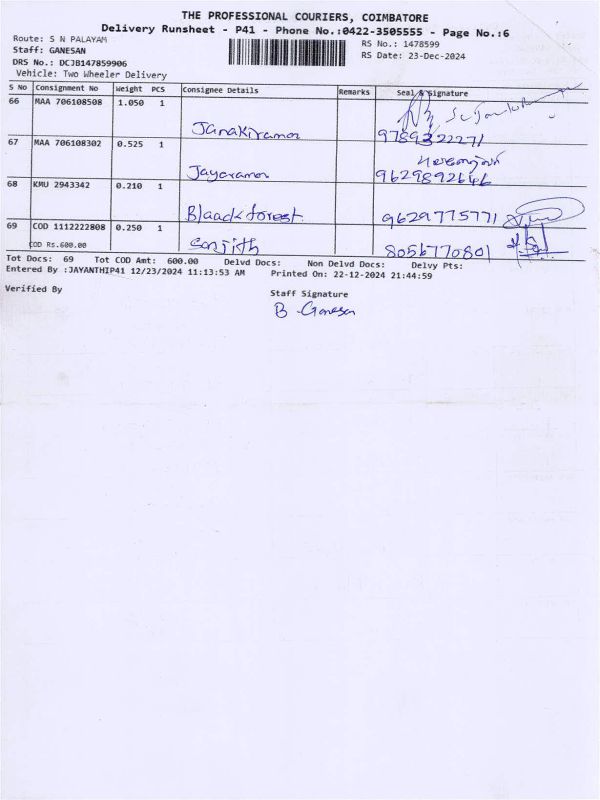 THE PROFESSIONAL COURIERS, COIMBATORE
Delivery Runsheet - P41 - Phone No.:0422-3505555 - Page No.:6
Route: S N PALAYAM
Staff: GANESAN
DRS No.: DCJB147859906
Vehicle: Two Wheeler Delivery
RS No.: 1478599
RS Date: 23-Dec-2024
S No Consignment No Weight PCS Consignee Details Remarks Seal & Signature
66 MAA 706108508 1.050 1
Janakiraman 9789322271
67 MAA 706108302 0.525 1
Jayaraman 9629892646
68 KMU 2943342 0.210 1
Blaack forest 9629775771
69 COD 1112222808 0.250 1
COD RS.600.00 Sanjith 8056770801
Tot Docs: 69 Tot COD Amt: 600.00 Delvd Docs: Non Delvd Docs: Delvy Pts:
Entered By :JAYANTHIP41 12/23/2024 11:13:53 AM Printed On: 22-12-2024 21:44:59
Verified By
Staff Signature
B Ganesan